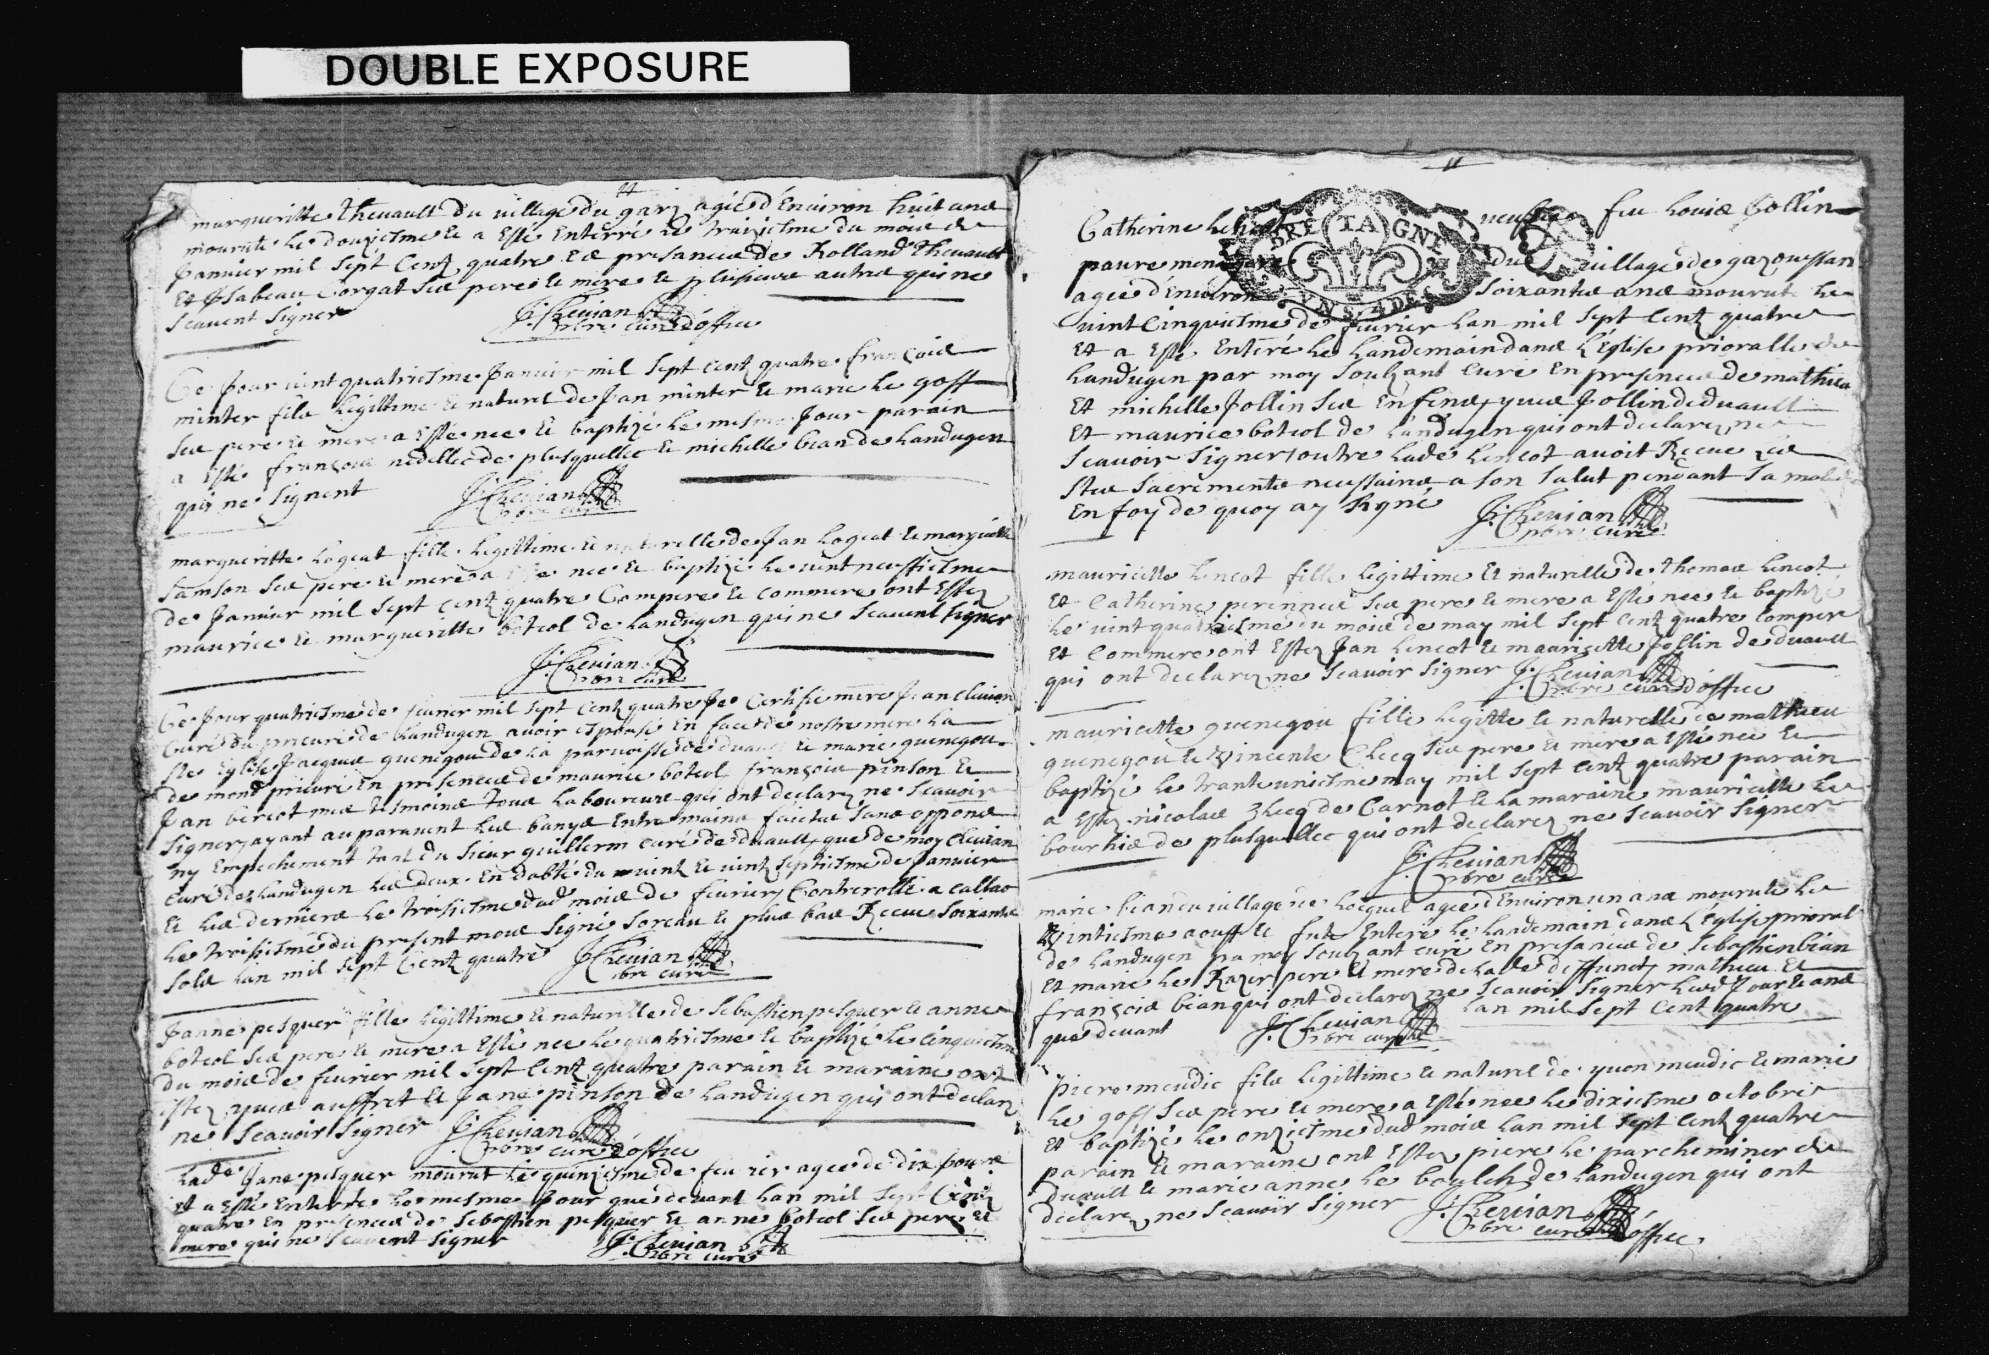 DOUBLE EXPOSURE
margueritte thevault du village du garz agée d'Environ huit ans
mourut le douziesme et a esté Enterré le traiziesme du mois de
Janvier mil sept Centz quatre en presance de Rolland Thevault
Et Isabeau Corgat ses pere et mere et plusieurs autres qui ne
scavent signer
J: Chevian
pbre curé d'office
Ce jour vint quatriesme Janvier mil sept centz quatre françois
minter fils legittime et naturel de Jan minter et marie le goff
ses pere et mere a esté nee et baptizé le mesme jour parain
a esté françois nedellec de plusquellec et michelle bian de Landugen
qui ne signent
J: Chevian
pbre curé
margueritte Logeat fille legittime et naturelle de Jan Logeat et margueritte
samson ses pere et mere a esté nee et baptizé le vint neuffiesme
de Janvier mil sept centz quatre Compere et commere ont Estez
maurice et margueritte botcol de Landugen qui ne scavent signer
J: Chevian
pbre curé
Ce jour quatriesme de feuvrier mil sept Centz quatre Je Certifie mire Jean Chevian
curé du prieuré de Landugen avoir Espousé En face de nostre mere la
ste Eglise Jacques quenegou de la parroisse de duault et marie quenegou
de mond prieuré En presence de maurice botcol françois pinson et
Jan bercot mes tesmoins tous laboureurs qui ont declarez ne scavoir
signer ayant auparavant les banys Entre mains faictes sans oppons
ny Empechement tant du sieur guillerm curé de duault que de moy Chevian
curé de Landugen les deux En dabte du vint et vint septiesme de Janvier
Et les derniers le troisiesme dud mois de feuvrier Controllé a callac
le troisiesme du present mois signé soreau et plus bas Receu soixante
sols lan mil sept Centz quatre
J: Chevian
pbre curé
Janne pesquer fille legittime et naturelle de Sebastien pesquer et anne
botcol ses pere et mere a Esté nee le quatriesme et baptizé le Cinquiesme
du mois de feuvrier mil sept Centz quatre parain et maraine ont
estez yves auffret et Janne pinson de Landugen qui ont declarez
ne scavoir signer
J: Chevian
pbre curé d'office
Lade Jane pesquer mourut le quinziesme de feuvrier agee de dix jours
et a esté Enterré le mesme jour que devant lan mil sept Centz
quatre En presence de Sebastien pesquer Et anne botcol ses pere et
mere qui ne scavent signer
J: Chevian
pbre curé
Catherine Lencot veufve feu Louis Jollin
BRETAGNE
pauvre menagere du village de gazoustan
agée d'Environ soixante ans mourut le
VN S 4 DE
vint Cinquiesme de feuvrier lan mil sept Centz quatre
Et a esté Enteré le Landemain dans L'Eglise prioralle de
Landugen par moy soubzant Curé En presence de mathieu
Et michelle Jollin ses Enfens yves Jollin de duault
Et maurice botcol de Landugen qui ont declarez ne
scavoir signer outre Lade Lencot avoit Receu les
stes sacrements necessaires a son salut pendant sa maladie
En foy de quoy ay signé
J: Chevian
pbre curé
mauricette Lencot fille legittime Et naturelle de thomas Lencot
Et Catherine perennes ses pere et mere a Esté nee et baptizé
le vint quatriesme du mois de may mil sept Centz quatre Comper
Et Commere ont Estez Jan Lencot et mauricette Jollin de duault
qui ont declarez ne scavoir signer
J: Chevian
pbre curé d'office
mauricette quenegou fille legitte et naturelle de mathieu
quenegou et Vincente Checq ses pere et mere a Esté nee et
baptizé le trante uniesme may mil sept Centz quatre parain
a Estez nicolas Checq de Carnot et la maraine mauricette le
bourhis de plusquellec qui ont declarez ne scavoir signer
J: Chevian
pbre curé
marie bian du village de Locquel agee d'Environ un ans mourut le
Vintiesme aoust et fut Enteré le Landemain dans L'Eglise prioral
de Landugen par moy soubzant curé En presances de Sebastien bian
Et marie le Razer pere et mere de Lade deffunctz mathieu Et
françois bian qui ont declarez ne scavoir signer lesd jour et ans
que devant lan mil sept Cent quatre
J: Chevian
pbre curé
piere meudic fils legittime et naturel de yvon meudic et marie
le goff ses pere et mere a Esté nee le diziesme octobre
Et baptizé le onziesme dud mois lan mil sept Centz quatre
parain et maraine ont Estez piere le parcheminer de
Duault et marie anne le boulch de Landugen qui ont
declarez ne scavoir signer
J: Chevian
pbre curé d'office